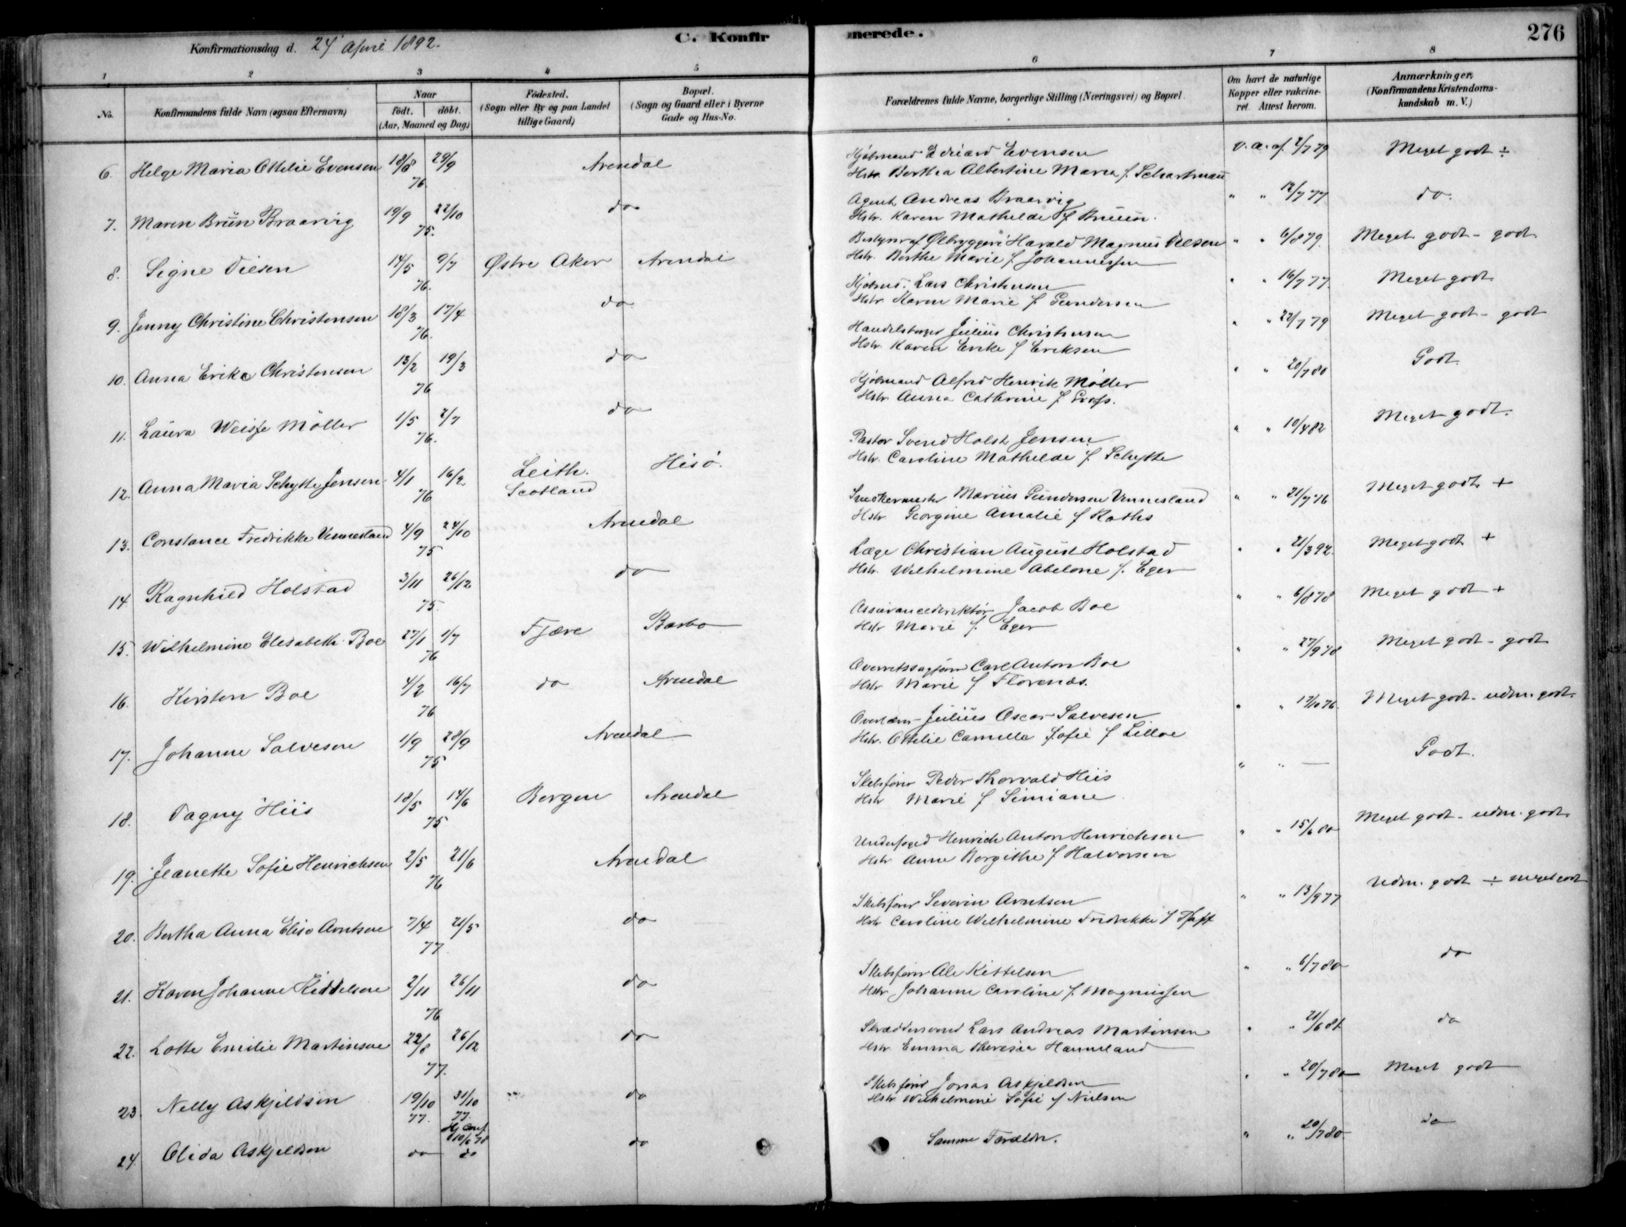 Konfirmationsdag d. 24 April 1892.
C. Konfirmerede.
276
1 2 3 4 5 6 7 8
No.
Konfirmandens fulde Navn (ogsaa Efternavn)
Naar
født. døbt.
(Aar, Maaned og Dag)
Fødested.
(Sogn eller By og paa Landet
tillige Gaard)
Bopæl.
(Sogn og Gaard eller i Byerne
Gade og Hus-No.
Forældrenes fulde Navne, borgerlige Stilling (Næringsvei) og Bopæl.
Om havt de naturlige
Kopper eller vakcine-
ret. Attest herom.
Anmærkninger.
(Konfirmandens Kristendoms-
kundskab m. V.)
6. Helge Maria Ottilie Evensen 18/8 29/9 Arendal Kjøbmand Edvard Evensen v. a. af 2/7 79 Meget godt ÷
76. Hstr Bertha Albertine Maria f. Schartman
7. Maren Bruun Braarvig 19/9 22/10 do Agent Andreas Braarvig " " 12/7 77 do.
75. Hstr. Karen Mathilde f Bruun.
8. Signe Olesen 14/5 9/7 Østre Aker Arendal Bestyrer af Ølbryggeri Harald Magnus Olesen " " 6/8 79. Meget godt - godt
76. Hstr. Berthe Marie f Johannessen
9. Jenny Christine Christensen 18/3 17/4 do Kjøbm. Lars Christensen " " 16/7 77. Meget godt
76. Hstr Karen Marie f Gundersen
10. Anna Erika Christensen 13/2 19/3 do Handelsborger Julius Christensen " " 22/7 79 Meget godt - godt
76 Hstr Karen Erike f Eriksen
11. Laura Weisse Møller 1/5 2/7 do Kjøbmand Alfred Henrik Møller " " 20/7 80 Godt
76. Hstr. Anna Cathrine f
12. Anna Maria Schytte Jensen 4/1 16/2 Leith. Scotland Hisø. Pastor Svend Holst Jensen " " 10/4 82 Meget godt.
76 Hstr. Caroline Mathilde f Schytte
13. Constance Fredrikke Vennesland 4/9 24/10 Arendal Snedkermester Marius Gundersen Vennesland " " 20/7 76 Meget godt +
75 Hstr Georgine Amalie f Raths
14 Ragnhild Holstad 3/11 26/12 do Læge Christian August Holstad " " 21/3 92. Meget godt +
75. Hstr. Wilhelmine Abelone f. Eger
15. Wilhelmine Elisabeth Boe 27/1 9/7 Fjære Barbo Assurancedirektør Jacob Boe " " 6/8 78 Meget godt +
76 Hstr Marie f. Eger
16. Kirsten Boe 4/2 16/7 do Arendal Overretssagfører Carl Anton Boe " " 27/9 78 Meget godt - godt
76 Hstr Marie f Florenæs.
17. Johanne Salvesen 1/9 28/9 Arendal Overlærer Julius Oscar Salvesen " " 12/10 76 Meget godt - udm. godt.
75 Hstr. Ottilie Camilla Sofie f Lilloe
18. Dagny Hiis 18/5 14/6 Bergen Arendal Skibsfører Peder Thorvald Hiis " " — Godt.
75 Hstr Marie f Simiane
19. Jeanette Sofie Henrichsen 2/5 21/6 Arendal Underfoged Henrich Anton Henrichsen " " 15/6 80 Meget godt - udm. godt
76 Hstr Anne Borgithe f Halvorsen
20. Bertha Anna Elise Arntsen 7/4 21/5 do Skibsfører Severin Arntsen " " 13/9 77 Udm. godt ÷ meget godt
77 Hstr Caroline Wilhelmine Fredrikke f
21. Karen Johanne Kiddelsen 2/11 26/11 do Skibsfører Ole Kittelsen " " 6/7 80 do
76 Hstr Johanne Caroline f. Magnussen
22. Lotte Emilie Martinsen 22/8 26/12 do Skræddersvend Lars Andreas Martinsen " " 21/6 81 do
77. Hstr. Emma Theresia Hanneland
23. Nelly Askjeldsen 19/10 31/10 do Skibsfører Jonas Askjeldsen " " 20/7 80 Meget godt
77. 77. Hstr Wilhelmine Sofie f Nielsen
24 Olida Askjeldsen do do do Samme Forældre. " " 20/7 80 do